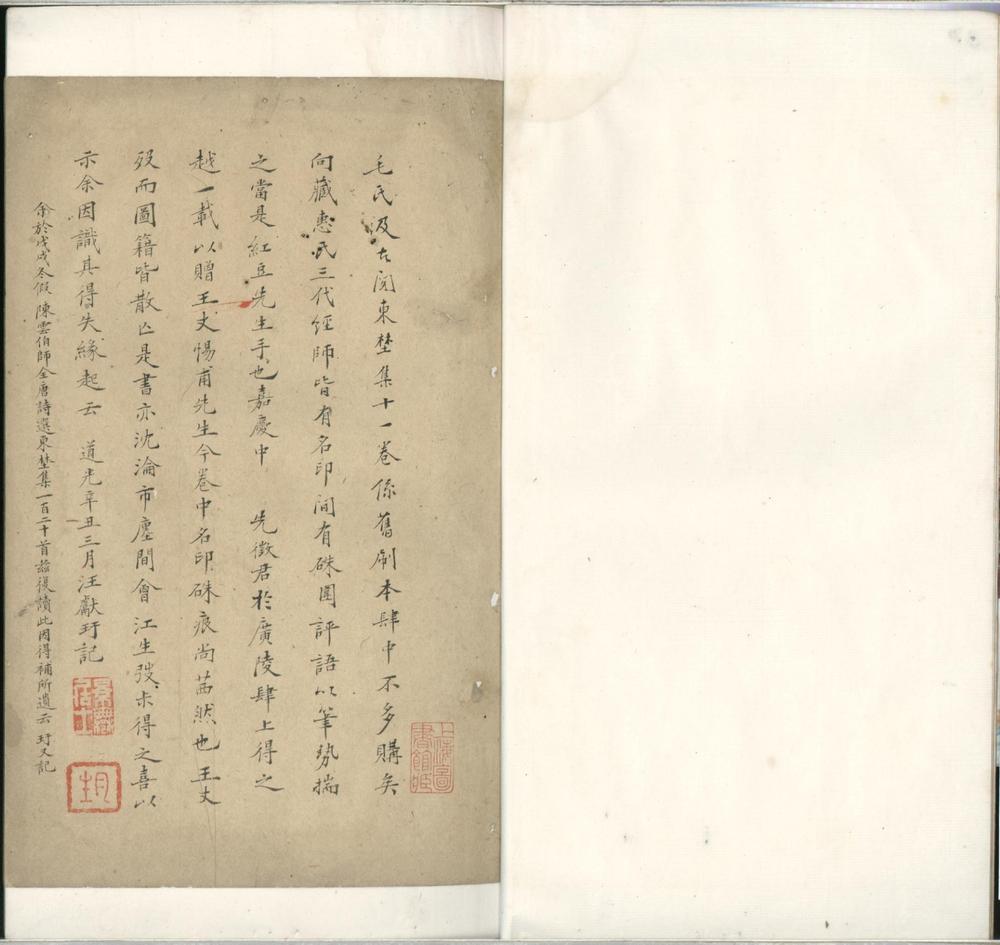 毛氏汲古閣東埜集十一卷係舊刷本肆中不多購矣
向藏惠氏三代經師皆有名印間有硃圈評語以筆勢揣
之當是紅豆先生手也嘉慶中 先徵君於廣陵肆上得之
越一載以贈王丈惕甫先生今卷中名印硃痕尚茜然也王丈
歿而圖籍皆散亾是書亦沈淪市廛間會江生弢未得之喜以
示余因識其得失緣起云 道光辛丑三月汪獻玗記
余於戊戌冬假 陳雲伯師全唐詩選東埜集一百二十首茲復讀此因得補所遺云 玗又記
上海圖書館藏